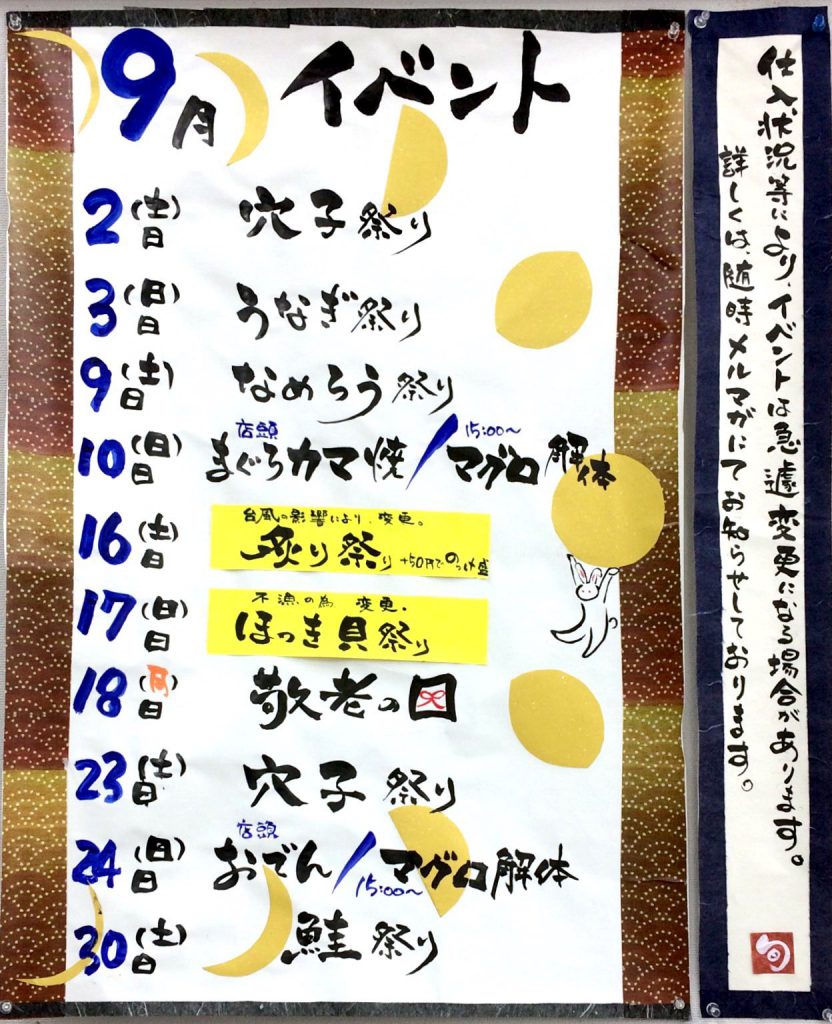 9月 イベント
2日(土) 穴子祭り
3日(日) うなぎ祭り
9日(土) なめろう祭り
店頭 15:00〜
10日(日) まぐろカマ焼/マグロ解体
台風の影響により、変更。
16日(土) 炙り祭り +50円でのっけ盛
不漁の為 変更。
17日(日) ほっき貝祭り
18日(月) 敬老の日
23日(土) 穴子祭り
店頭
24日(日) おでん/マグロ解体
15:00〜
30日(土) 鮭祭り
仕入状況等により、イベントは急遽変更になる場合があります。
詳しくは、随時メルマガにてお知らせしております。